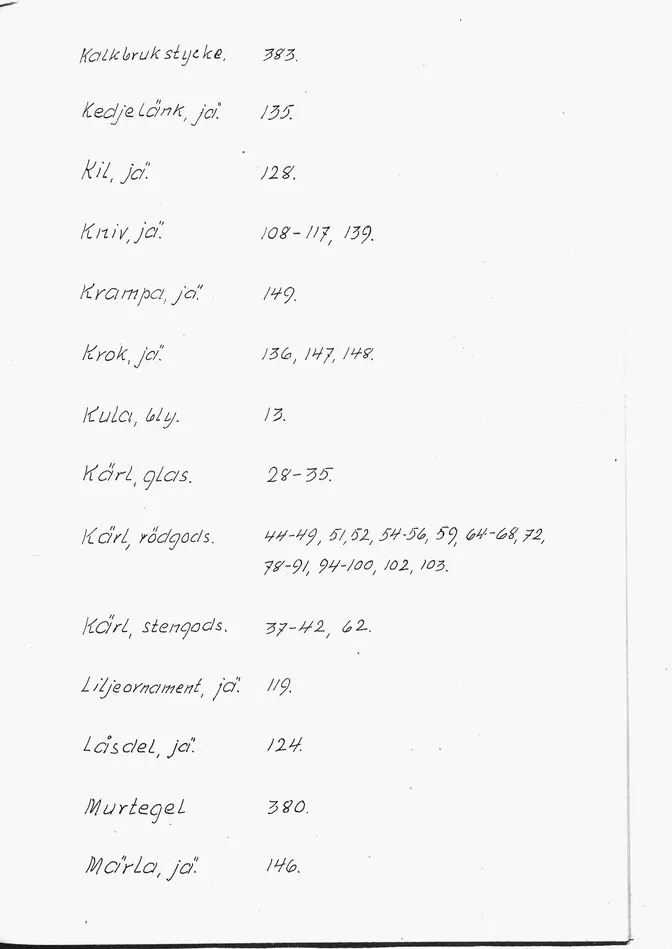 Kalkbrukstycke. 383.
Kedjelänk, jä. 135.
Kil, jä. 128.
Kniv, jä. 108-117, 139.
Krampa, jä. 149.
Krok, jä. 136, 147, 148.
Kula, bly. 13.
Kärl, glas. 28-35.
Kärl, rödgods. 44-49, 51, 52, 54-56, 59, 64-68, 72,
78-91, 94-100, 102, 103.
Kärl, stengods. 37-42, 62.
Liljeornament, jä. 119.
Låsdel, jä. 124.
Murtegel 380.
Märla, jä. 146.